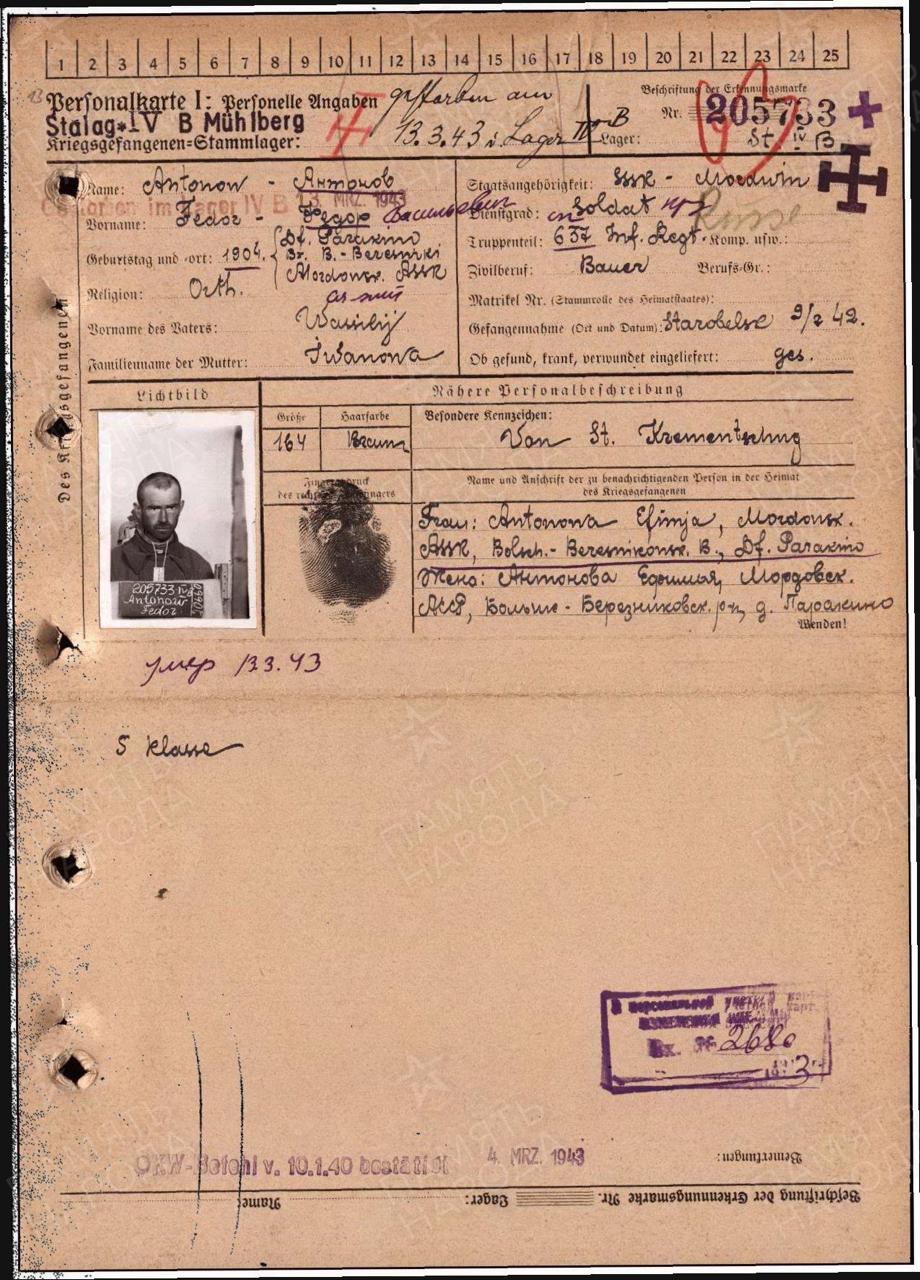 1 2 3 4 5 6 7 8 9 10 11 12 13 14 15 16 17 18 19 20 21 22 23 24 25
Personalkarte I: Personelle Angaben
Stalag IV B Mühlberg
Kriegsgefangenen=Stammlager:
gestorben am
13.3.43 i. Lager IV B
Beschriftung der Erkennungsmarke
Nr. 205733
Lager: St IV B
Des Kriegsgefangenen
Name: Antonow - Антонов
Gestorben im Lager IV B 13. MRZ. 1943
Vorname: Fedor - Федор Васильевич
Geburtstag und -ort: 1904. Df. Parakino
Br. B.-Beresniki
Mordowsk. ASSR
Religion: Orth.
Vorname des Vaters: Wassilij
Familienname der Mutter: Iwanowa
Staatsangehörigkeit: SSR - Mordwin
Dienstgrad: Soldat
Russe
Truppenteil: 637 Inf. Regt. Komp. usw.:
Zivilberuf: Bauer Berufs-Gr.:
Matrikel Nr. (Stammrolle des Heimatstaates):
Gefangennahme (Ort und Datum): Starobelsk 9/2 42.
Ob gesund, krank, verwundet eingeliefert: ges.
Lichtbild
Nähere Personalbeschreibung
Größe Haarfarbe
164 Braun
Besondere Kennzeichen:
Von St. Krementschug
Fingerabdruck
des rechten Zeigefingers
Name und Anschrift der zu benachrichtigenden Person in der Heimat
des Kriegsgefangenen
Frau: Antonowa Efimja, Mordowsk.
ASSR, Bolsch.-Beresnikowsk. B., Df. Parakino
Жена: Антонова Ефимья, Мордовск.
АССР, Больше-Березниковск. р-н, д. Паракино
Wenden!
205733 IV B
Antonow
Fedor
умер 13.3.43
5 Klasse
Вх. № 2680
OKW-Befehl v. 10.1.40 bestätigt 4. MRZ. 1943
Bemerkungen:
Beschriftung der Erkennungsmarke Nr. Lager: Name: